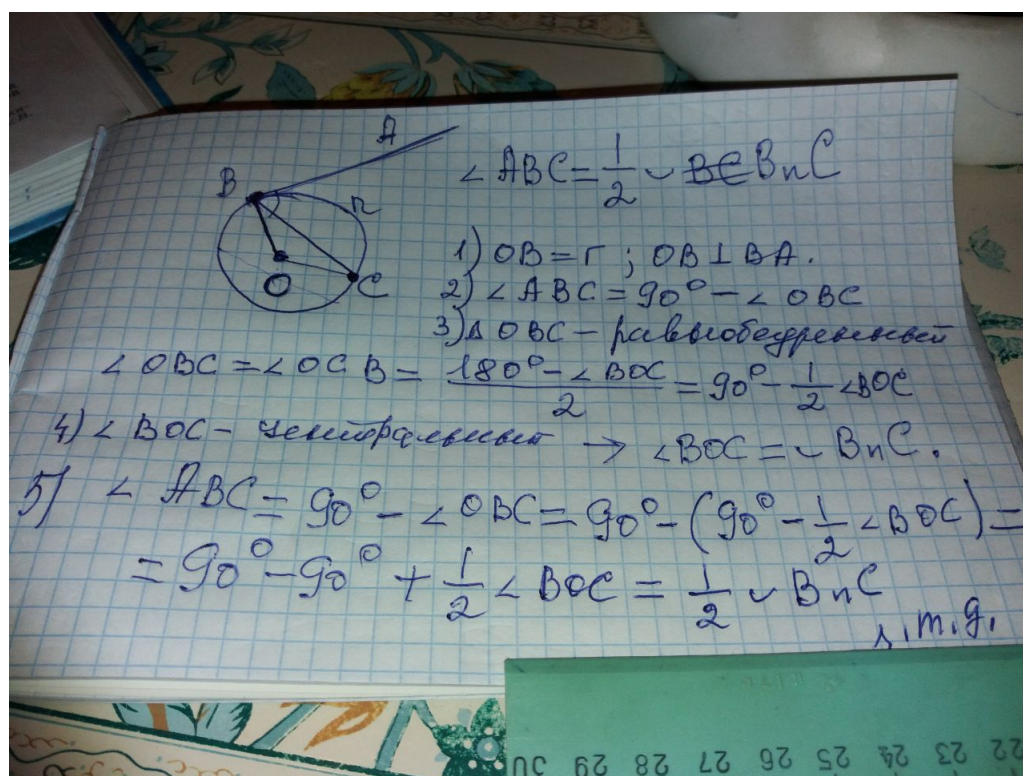 A
B
n
O
C
∠ABC = 1/2 ◡ B̶C̶ BnC
1) OB = r ; OB ⊥ BA.
2) ∠ABC = 90° - ∠OBC
3) △ OBC - равнобедренный
∠OBC = ∠OCB = (180° - ∠BOC)/2 = 90° - 1/2 ∠BOC
4) ∠BOC - центральный → ∠BOC = ◡ BnC.
5) ∠ABC = 90° - ∠OBC = 90° - (90° - 1/2 ∠BOC) =
= 90° - 90° + 1/2 ∠BOC = 1/2 ◡ BnC
ч.т.д.
22 23 24 25 26 27 28 29